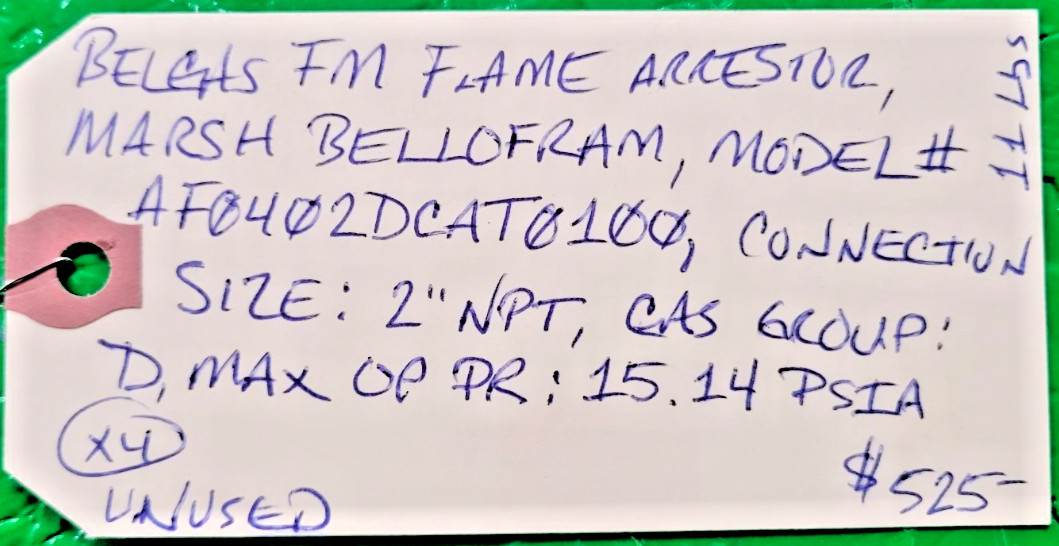 BELGAS FM FLAME ARRESTOR,
MARSH BELLOFRAM, MODEL #
AF0402DCAT0100, CONNECTION
SIZE: 2" NPT, GAS GROUP:
D, MAX OP PR: 15.14 PSIA
X4
UNUSED
$525-
11 LBS